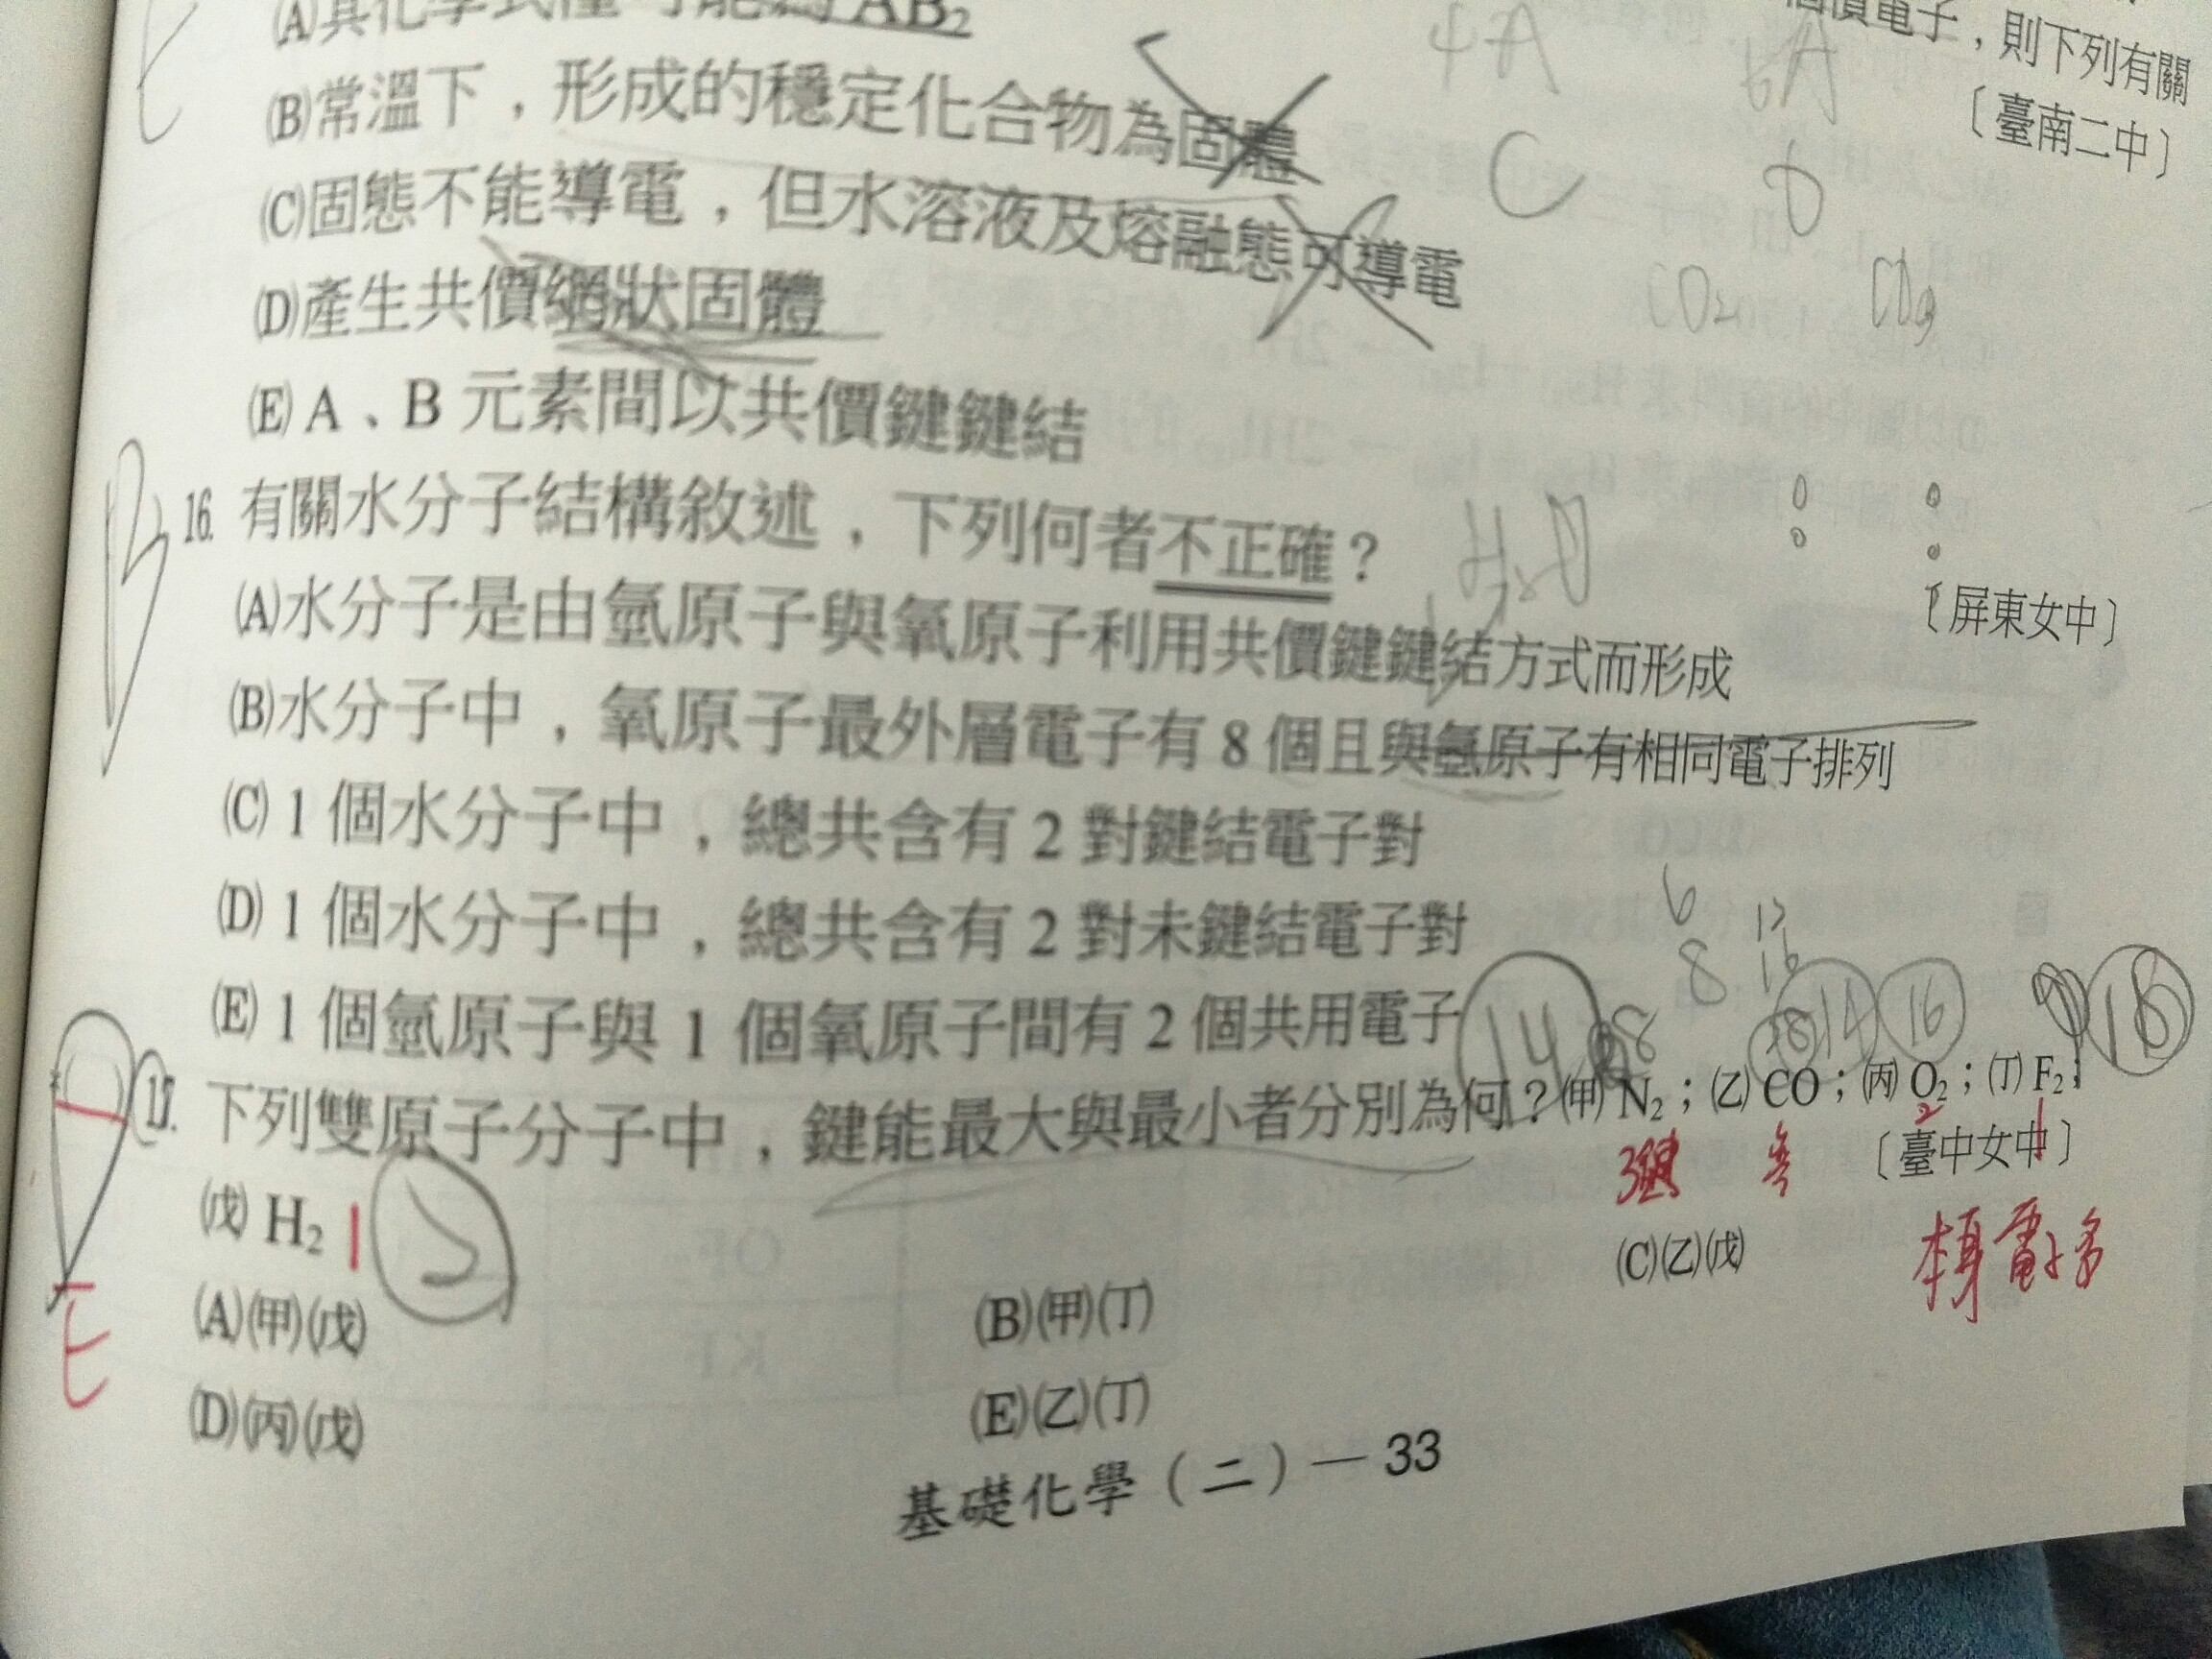 AB₂
個價電子，則下列有關
(B)常溫下，形成的穩定化合物為固體
〔臺南二中〕
4A 6A
C O
(C)固態不能導電，但水溶液及熔融態可導電
(D)產生共價網狀固體
CO₂
(E) A、B 元素間以共價鍵鍵結
B
16. 有關水分子結構敘述，下列何者不正確？
H₂O
〔屏東女中〕
(A)水分子是由氫原子與氧原子利用共價鍵鍵結方式而形成
(B)水分子中，氧原子最外層電子有 8 個且與氫原子有相同電子排列
(C) 1 個水分子中，總共含有 2 對鍵結電子對
(D) 1 個水分子中，總共含有 2 對未鍵結電子對
6 12
8 16
(E) 1 個氫原子與 1 個氧原子間有 2 個共用電子
14 8 14 16 18
17. 下列雙原子分子中，鍵能最大與最小者分別為何？(甲) N₂；(乙) CO；(丙) O₂；(丁) F₂；
3鍵 2 1
〔臺中女中〕
(戊) H₂ 1 2
本身電子多
(A)(甲)(戊) (B)(甲)(丁) (C)(乙)(戊)
E
(D)(丙)(戊) (E)(乙)(丁)
基礎化學（二）— 33